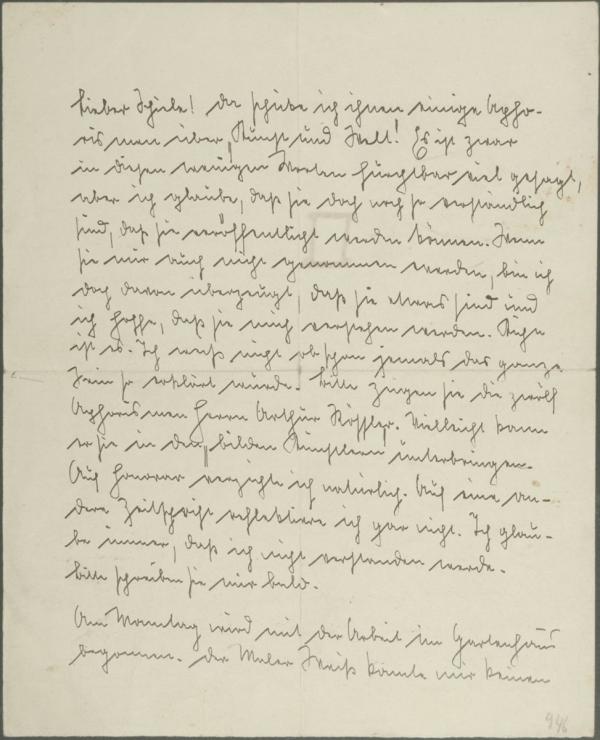 Lieber Schiele! da schicke ich ihnen einige Apho-
rismen über „Kunst und Welt! Es ist zwar
in diesen wenigen Worten furchtbar viel gesagt,
aber ich glaube, daß sie doch noch so verständlich
sind, daß sie veröffentlicht werden können. Wenn
sie mir auch nicht genommen werden, bin ich
doch davon überzeugt, daß sie etwas sind und
ich hoffe, daß sie mich verstehen werden.
ist es. Ich weiß nicht ob schon jemals das ganze
Sein so erklärt wurde. bitte zeigen sie die zwölf
Aphorismen Herrn Arthur Rössler. Vielleicht kann
er sie in den „bilden Künstlern" unterbringen.
Auf honorar verzichte ich natürlich. Auf eine an-
dere Zeitschrift reflektiere ich gar nicht. Ich glau-
be immer, daß ich nicht verstanden werde.
bitte schreiben sie mir bald.
Am Montag wird mit der Arbeit im Gartenhaus
begonnen. der Maler Weiß konnte mir keinen
946